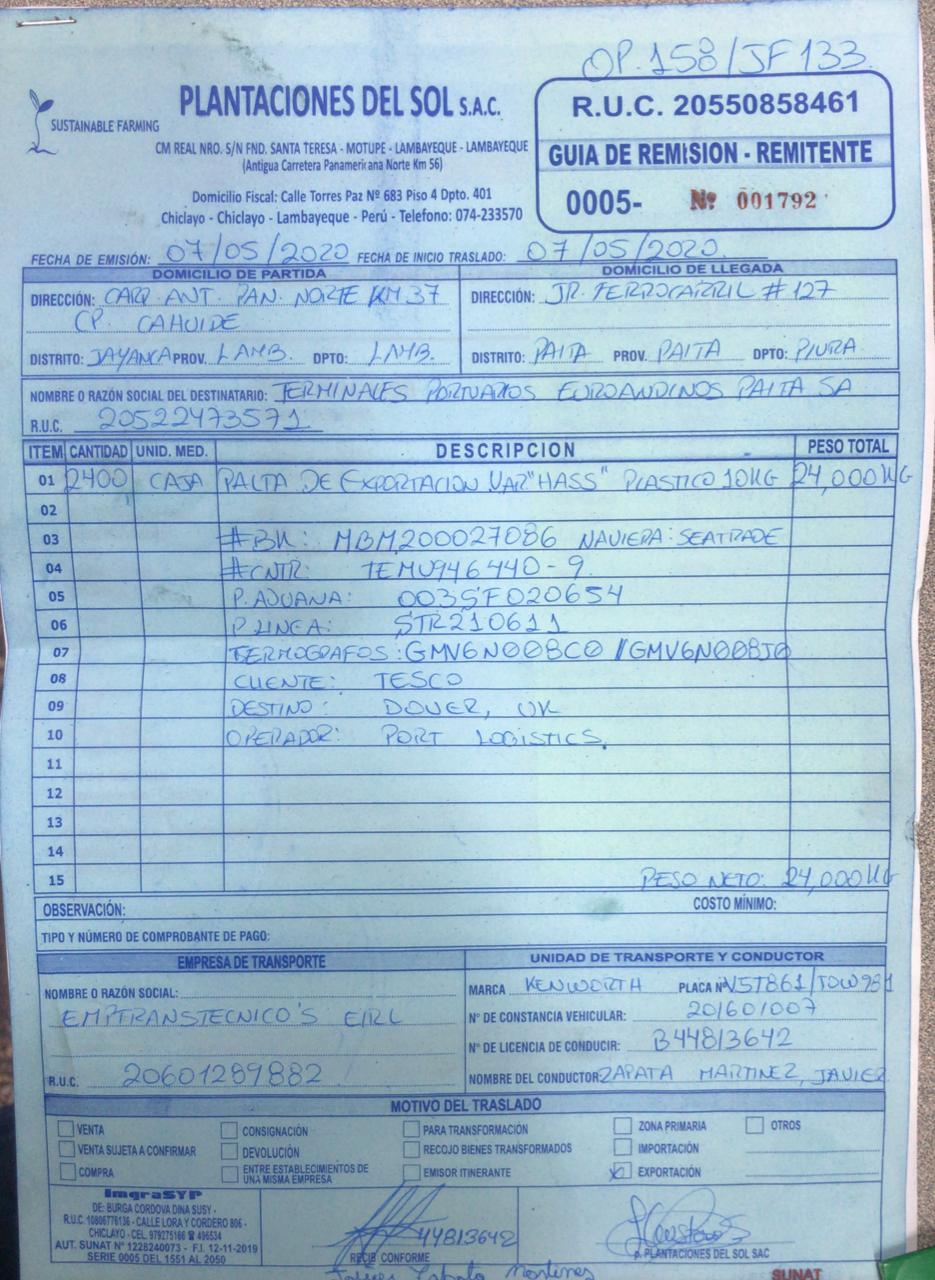 OP.158/JF 133.
SUSTAINABLE FARMING
PLANTACIONES DEL SOL S.A.C.
CM REAL NRO. S/N FND. SANTA TERESA - MOTUPE - LAMBAYEQUE - LAMBAYEQUE
(Antigua Carretera Panamericana Norte Km 56)
Domicilio Fiscal: Calle Torres Paz Nº 683 Piso 4 Dpto. 401
Chiclayo - Chiclayo - Lambayeque - Perú - Telefono: 074-233570
R.U.C. 20550858461
GUIA DE REMISION - REMITENTE
0005- Nº 001792
FECHA DE EMISIÓN: 07/05/2020 FECHA DE INICIO TRASLADO: 07/05/2020.
DOMICILIO DE PARTIDA
DIRECCIÓN: CARR. ANT. PAN. NORTE KM 37
CP. CAHUIDE
DISTRITO: JAYANCA PROV. LAMB. DPTO: LAMB.
DOMICILIO DE LLEGADA
DIRECCIÓN: JR. FERROCARRIL # 127
DISTRITO: PAITA PROV. PAITA DPTO: PIURA
NOMBRE O RAZÓN SOCIAL DEL DESTINATARIO: TERMINALES PORTUARIOS EUROANDINOS PAITA SA
R.U.C. 20522473571
ITEM CANTIDAD UNID. MED. DESCRIPCION PESO TOTAL
01 2400 CAJA PALTA DE EXPORTACION VAR "HASS" PLASTICO 10KG 24,000KG
02
03 #BK: MBM200027086 NAVIERA: SEATRADE
04 #CNTR: TEMU946440-9.
05 P. ADUANA: 003SF020654
06 P. LINEA: STR210611
07 TERMOGRAFOS: GMV6N008C0 //GMV6N008J0
08 CLIENTE: TESCO
09 DESTINO: DOVER, UK
10 OPERADOR: PORT LOGISTICS.
11
12
13
14
15 PESO NETO: 24,000KG
OBSERVACIÓN: COSTO MÍNIMO:
TIPO Y NÚMERO DE COMPROBANTE DE PAGO:
EMPRESA DE TRANSPORTE
NOMBRE O RAZÓN SOCIAL:
EMPTRANSTECNICO'S EIRL
R.U.C. 20601289882
UNIDAD DE TRANSPORTE Y CONDUCTOR
MARCA KENWORTH PLACA Nº V5T861/T0W981
N° DE CONSTANCIA VEHICULAR: 201601007
N° DE LICENCIA DE CONDUCIR: B44813642
NOMBRE DEL CONDUCTOR: ZAPATA MARTINEZ, JAVIER
MOTIVO DEL TRASLADO
VENTA CONSIGNACIÓN PARA TRANSFORMACIÓN ZONA PRIMARIA OTROS
VENTA SUJETA A CONFIRMAR DEVOLUCIÓN RECOJO BIENES TRANSFORMADOS IMPORTACIÓN
COMPRA ENTRE ESTABLECIMIENTOS DE UNA MISMA EMPRESA EMISOR ITINERANTE EXPORTACIÓN
ImgraSYP
DE: BURGA CORDOVA DINA SUSY -
R.U.C. 10806776136 - CALLE LORA Y CORDERO 806 -
CHICLAYO - CEL. 979275166 ☎ 496534
AUT. SUNAT N° 1228240073 - F.I. 12-11-2019
SERIE 0005 DEL 1551 AL 2050
44813642
RECIBI CONFORME
Javier Zapata Martinez
p. PLANTACIONES DEL SOL SAC
SUNAT